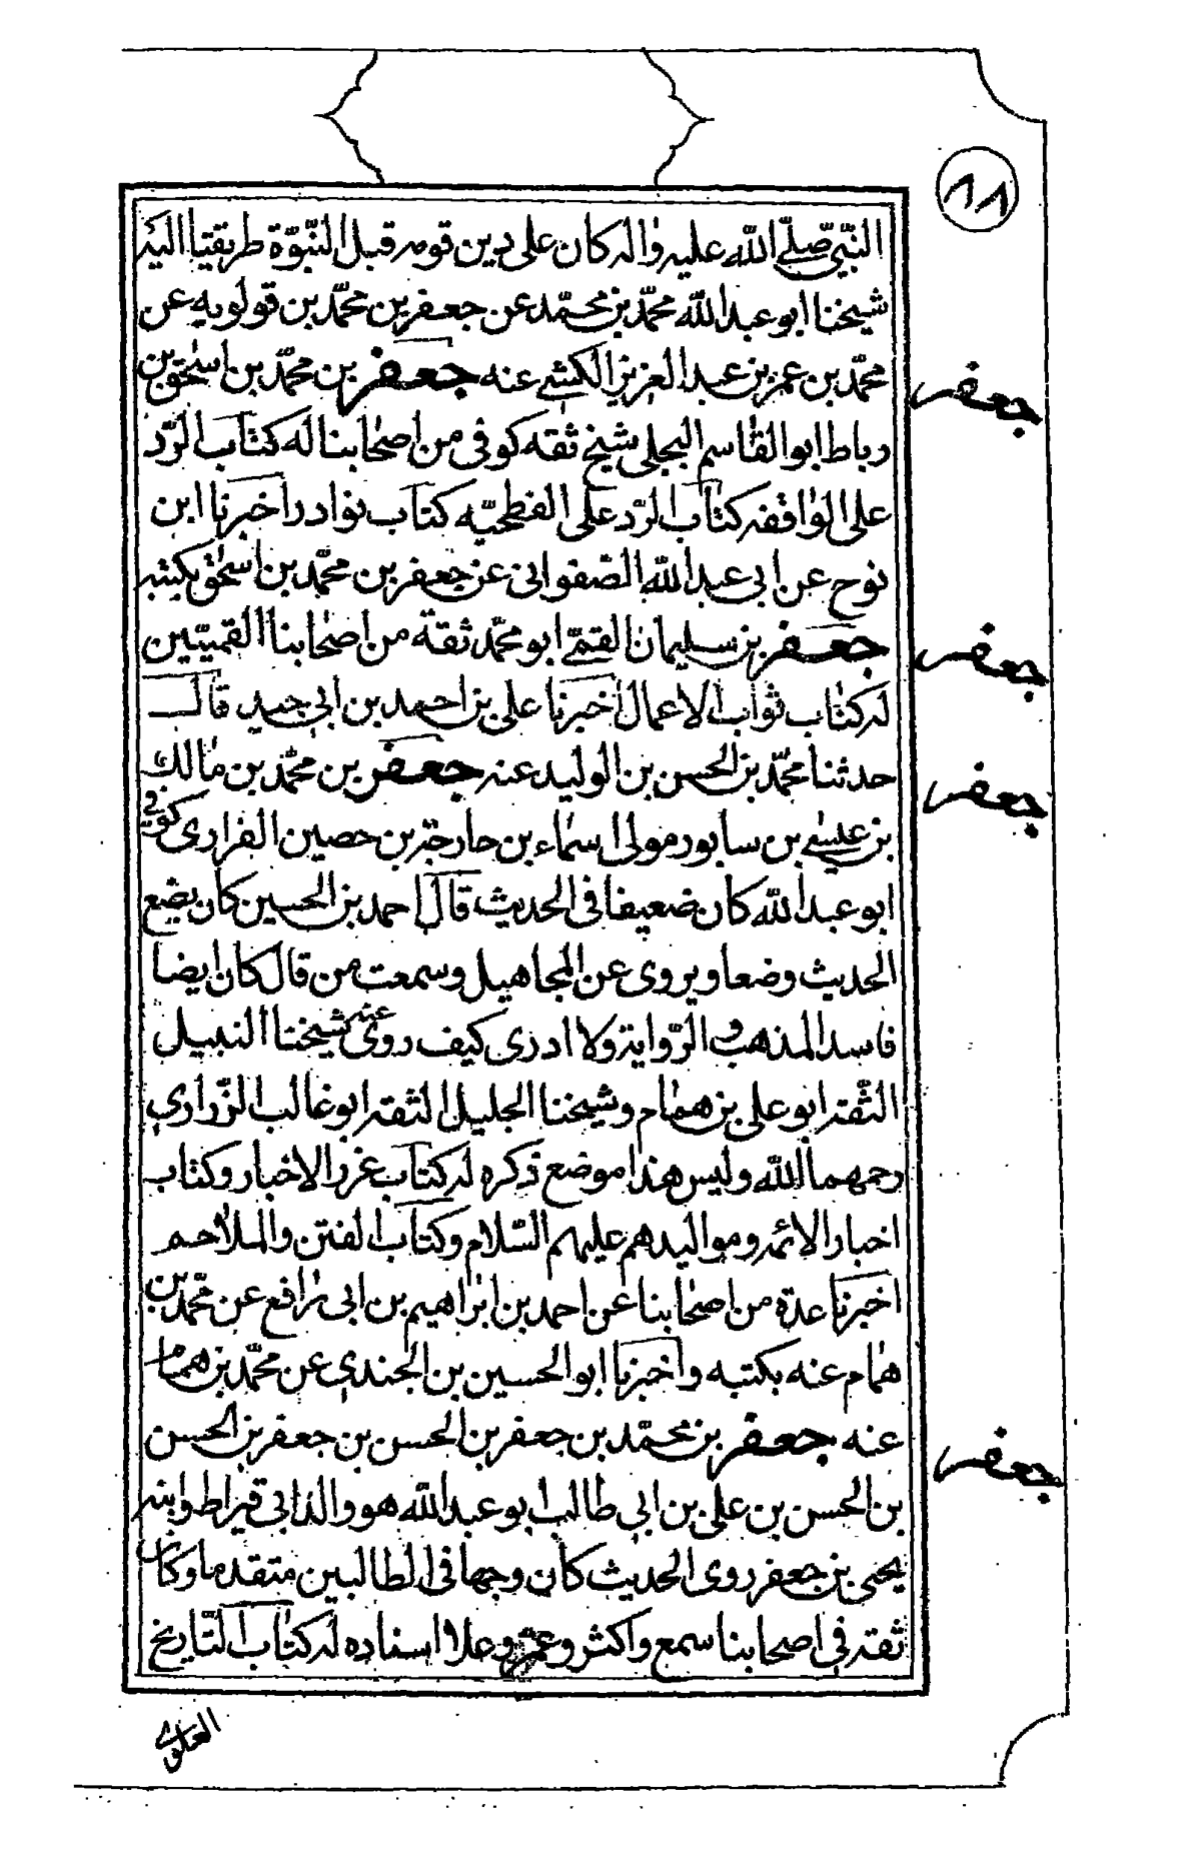 ٨٨
النّبيّ صلّى اللّه عليه واله كان على دين قومه قبل النّبوّة طريقنا اليه
شيخنا ابو عبد اللّه محمّد بن محمّد عن جعفر بن محمّد بن قولويه عن
محمّد بن عمر بن عبد العزيز الكشي عنه جعفر بن محمّد بن اسحق بن
جعفر
رباط ابو القاسم البجلي شيخ ثقه كوفى من اصحابنا له كتاب الرّد
على الواقفه كتاب الرّد على الفطحيّه كتاب نوادر اخبرنا ابن
نوح عن ابى عبد اللّه الصّفوانى عن جعفر بن محمّد بن اسحق بكتبه
جعفر بن سليمان القمّي ابو محمّد ثقة من اصحابنا القميّين
جعفر
له كتاب ثواب الاعمال اخبرنا على بن احمد بن ابي جيد قال
حدثنا محمّد بن الحسن بن الوليد عنه جعفر بن محمّد بن مالك
جعفر
بن عيسى بن سابور مولى اسماء بن خارجة بن حصين الفزارى كوفي
ابو عبد اللّه كان ضعيفا فى الحديث قال احمد بن الحسين كان يضع
الحديث وضعا ويروى عن المجاهيل وسمعت من قال كان ايضا
فاسد المذهب و الرّواية ولا ادرى كيف روى عنه شيخنا النبيل
الثّقة ابو على بن همام وشيخنا الجليل الثقة ابو غالب الزّراري
رحمهما اللّه وليس هذا موضع ذكره له كتاب غرر الاخبار وكتاب
اخبار الائمه ومواليدهم عليهم السّلام وكتاب الفتن والملاحم
اخبرنا عدّة من اصحابنا عن احمد بن ابراهيم بن ابى رافع عن محمّد بن
همام عنه بكتبه واخبرنا ابو الحسين بن الجندي عن محمّد بن همام
عنه جعفر بن محمّد بن جعفر بن الحسن بن جعفر بن الحسن
جعفر
بن الحسن بن على بن ابي طالب ابو عبد اللّه هو والد ابى قيراط وابنه
يحيى بن جعفر روى الحديث كان وجها فى الطالبين متقدما وكان
ثقه في اصحابنا سمع واكثر وعمّر وعلا اسناده له كتاب التّاريخ
العلوي